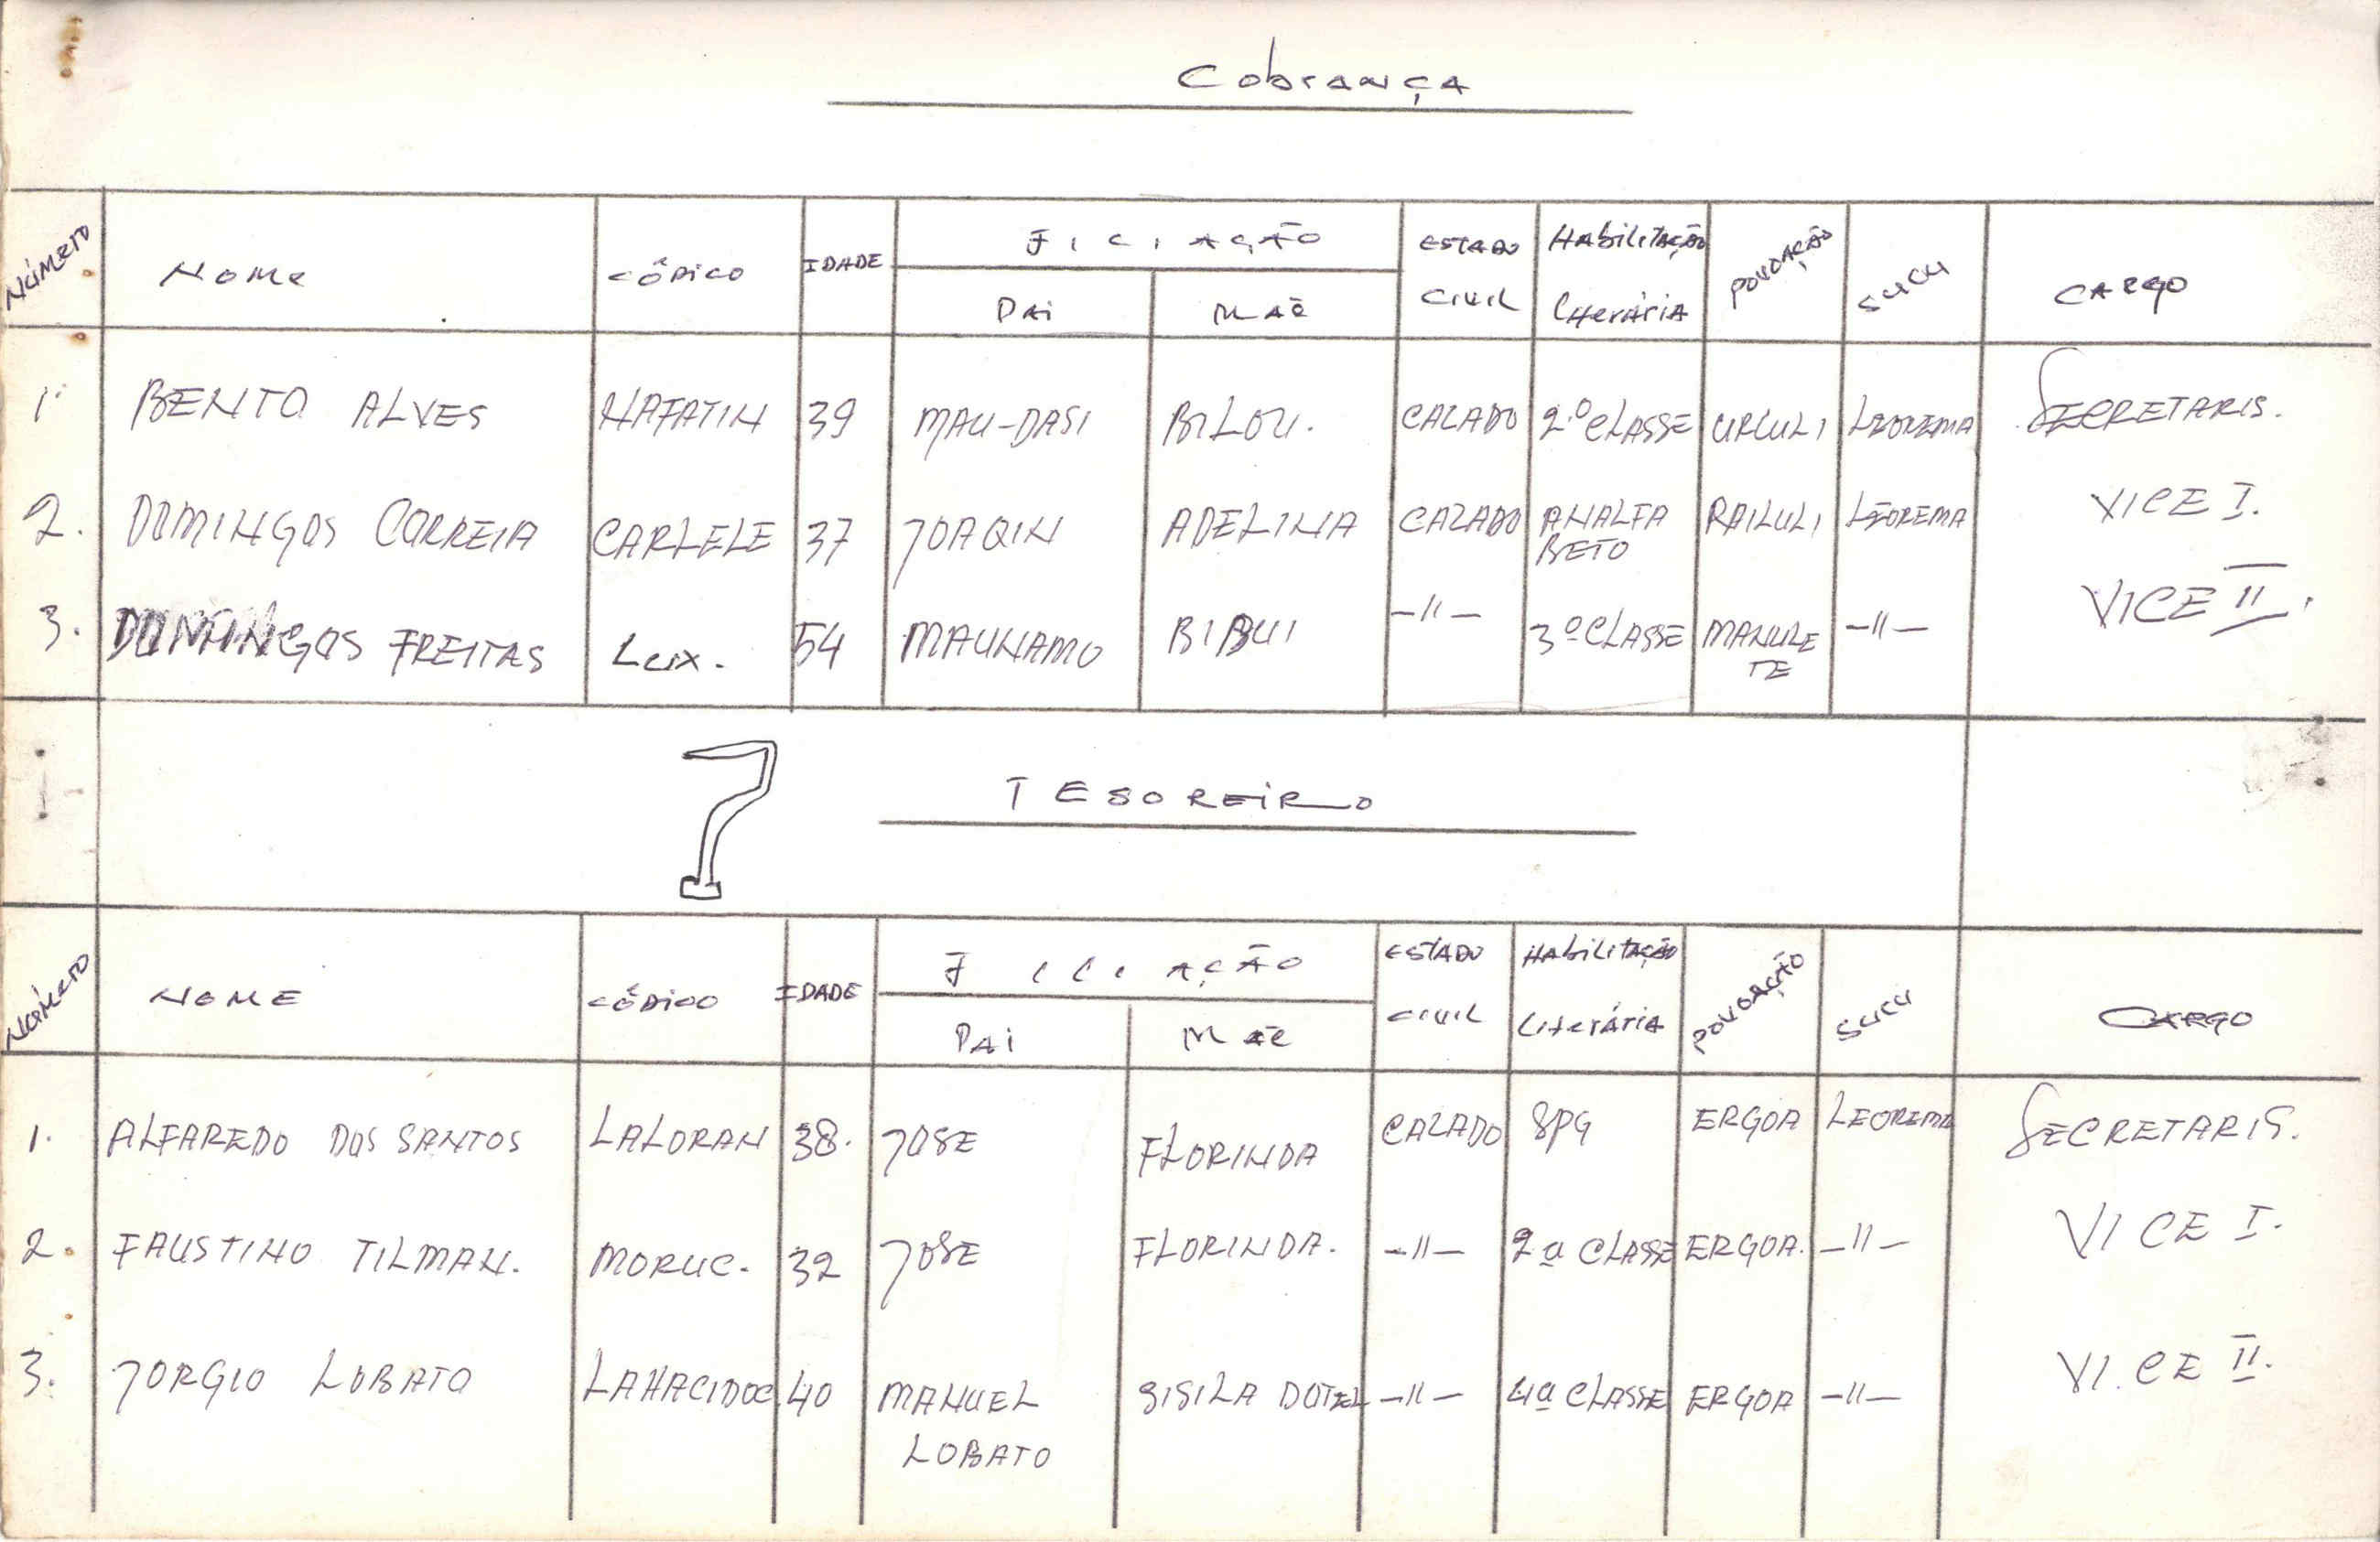 Cobrança
Número Nome Códico IDADE Filiação ESTADO CIVIL Habilitação Literária Povoação Sucu CARGO
Pai Mãe
1. BENTO ALVES NAFATIN 39 MAU-DASI BILOU. CAZADO 2.º CLASSE URLULI LEOREMA SECRETARIS.
2. DOMINGOS CORREIA CARLELE 37 JOAQIN ADELINA CAZADO ANALFA BETO RAILULI LEOREMA VICE I.
3. DOMINGOS FREITAS Lux. 54 MAUNAMO BIBUI —"— 3º CLASSE MANULE TE —"— VICE II.
7 TESOREIRO
Número NOME Códico IDADE Filiação ESTADO CIVIL Habilitação Literária Povoação Sucu CARGO
Pai Mãe
1. ALFAREDO DOS SANTOS LALORAN 38. JOSE FLORINDA CAZADO SPG ERGOA LEOREMA SECRETARIS.
2. FAUSTINO TILMAN. MORUC. 32 JOSE FLORINDA. —"— 2ª CLASSE ERGOA. —"— VICE I.
3. JORGIO LOBATO LAHACIDOC 40 MANUEL LOBATO SISILA DOTEL —"— 4ª CLASSE ERGOA —"— VICE II.